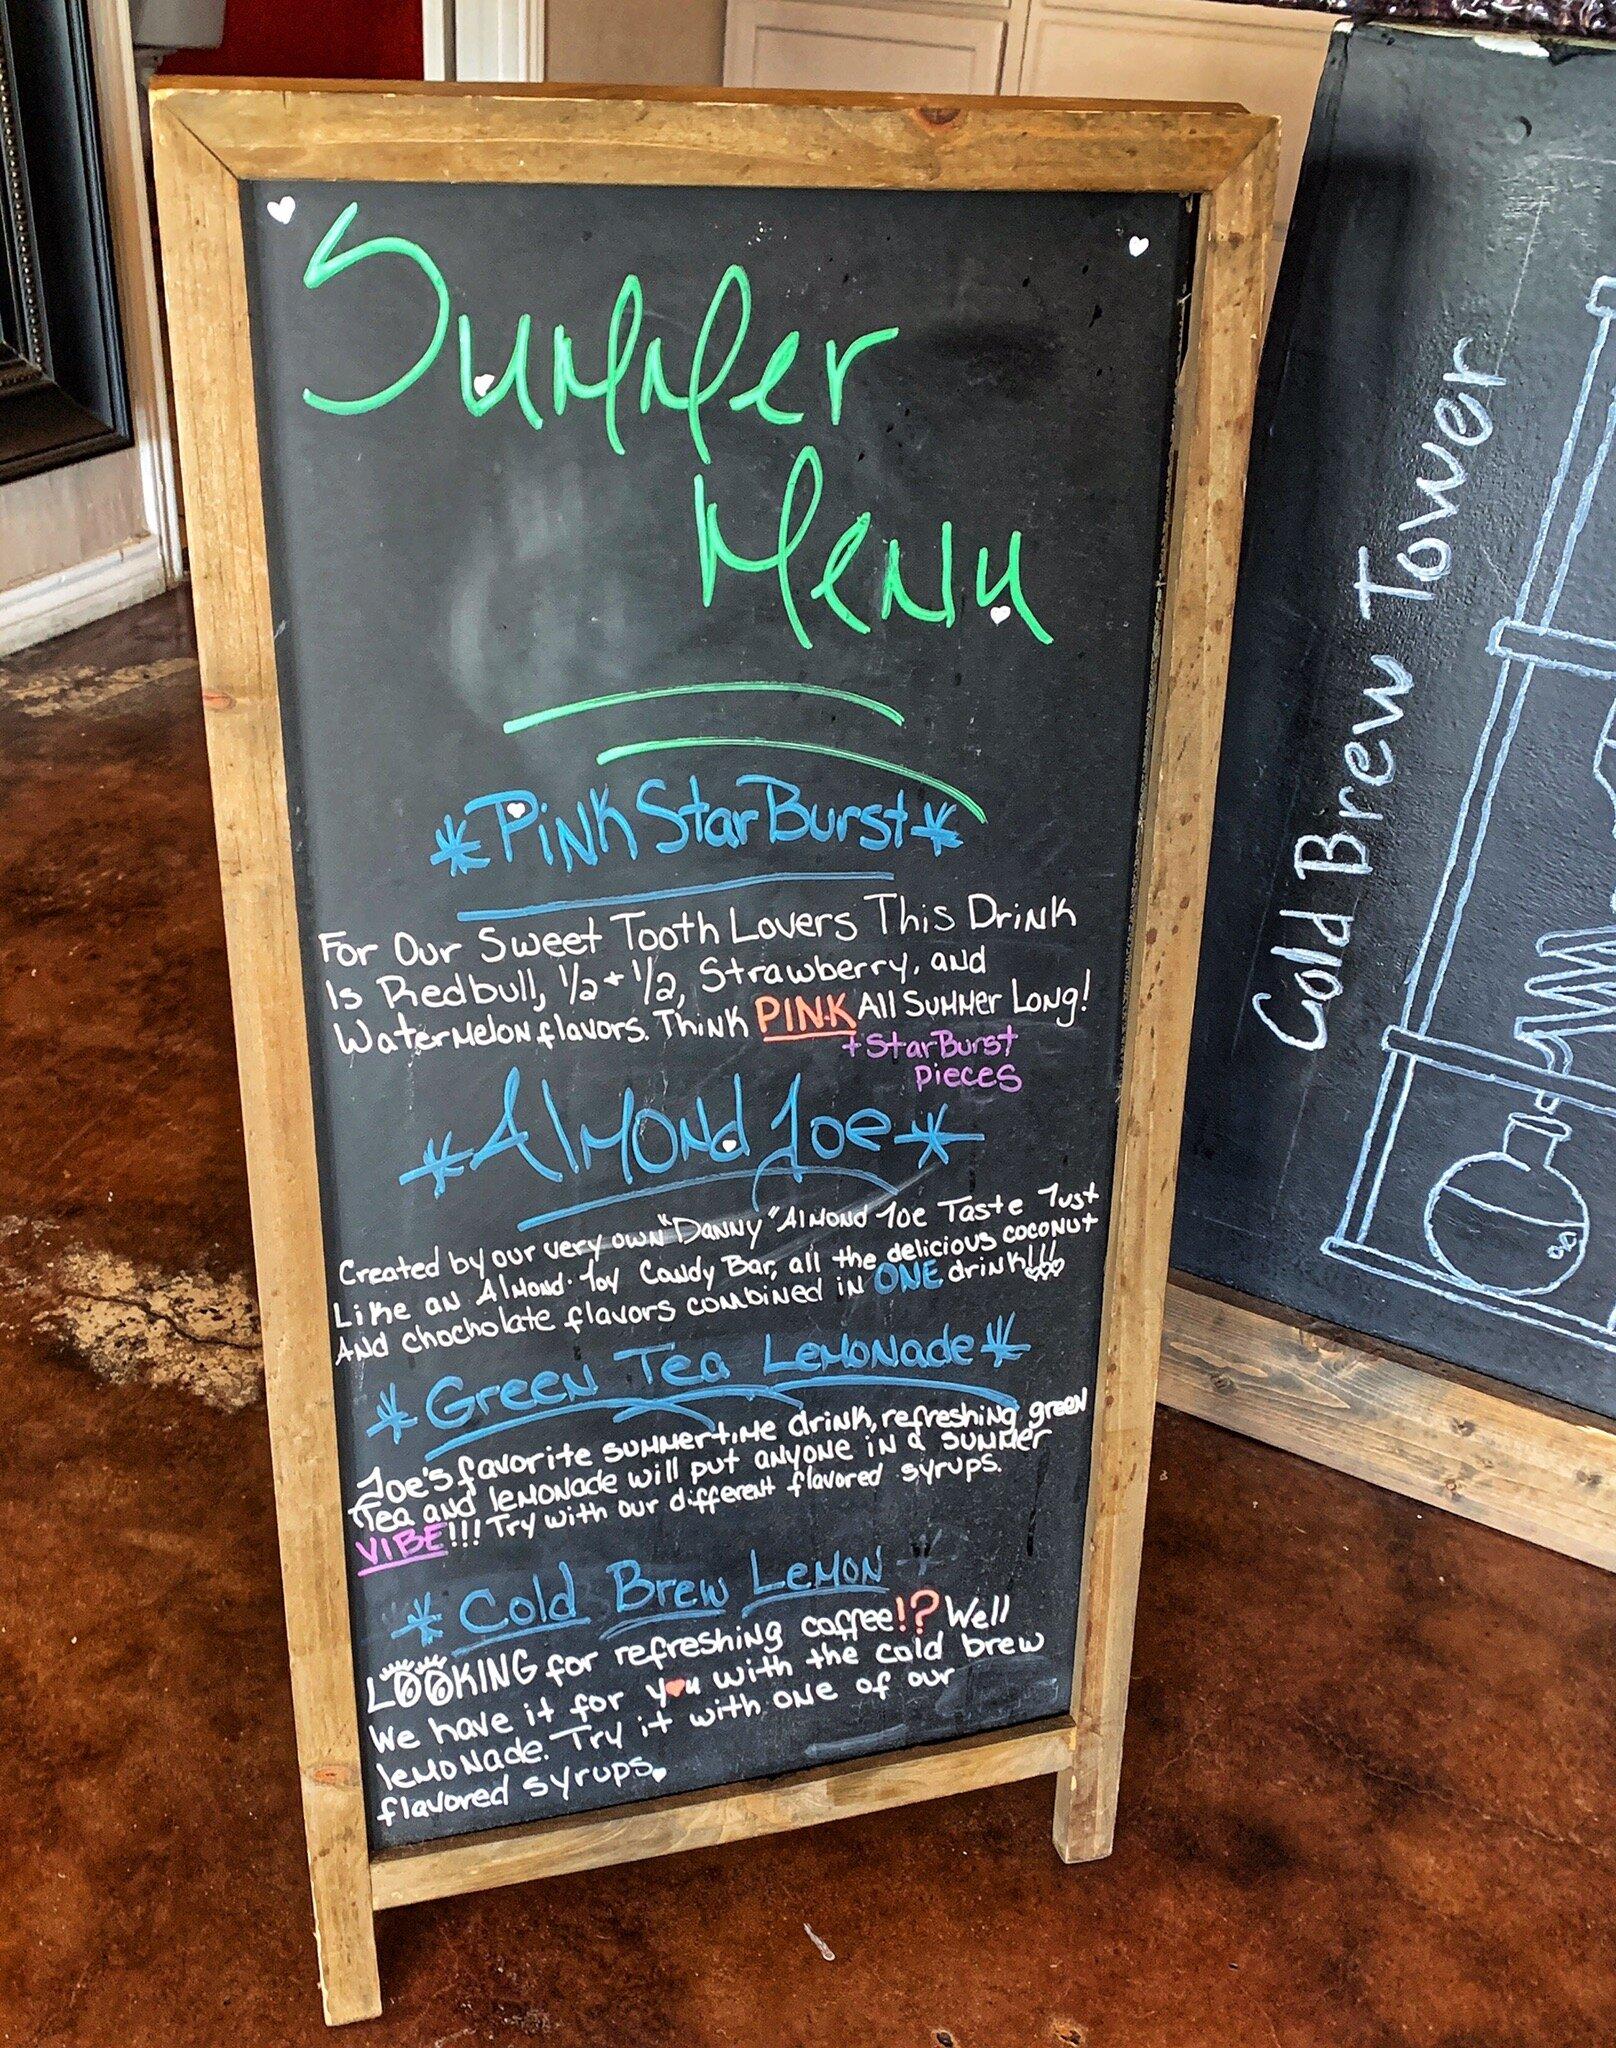 Summer
Menu
*Pink StarBurst*
For Our Sweet Tooth Lovers This Drink
Is Redbull, 1/2 + 1/2, Strawberry, and
Watermelon flavors. Think PINK All Summer Long!
+ StarBurst
pieces
*Almond Joe*
Created by our very own "Danny" Almond Joe Taste Just
Like an Almond-Joy Candy Bar, all the delicious coconut
And chocholate flavors combined in ONE drink!!!
*Green Tea Lemonade*
Joe's favorite summertime drink, refreshing green
Tea and lemonade will put anyone in a summer
VIBE!!! Try with our different flavored syrups.
*Cold Brew Lemon*
LOOKING for refreshing coffee!? Well
We have it for you with the cold brew
lemonade. Try it with one of our
flavored syrups.
Cold Brew Tower